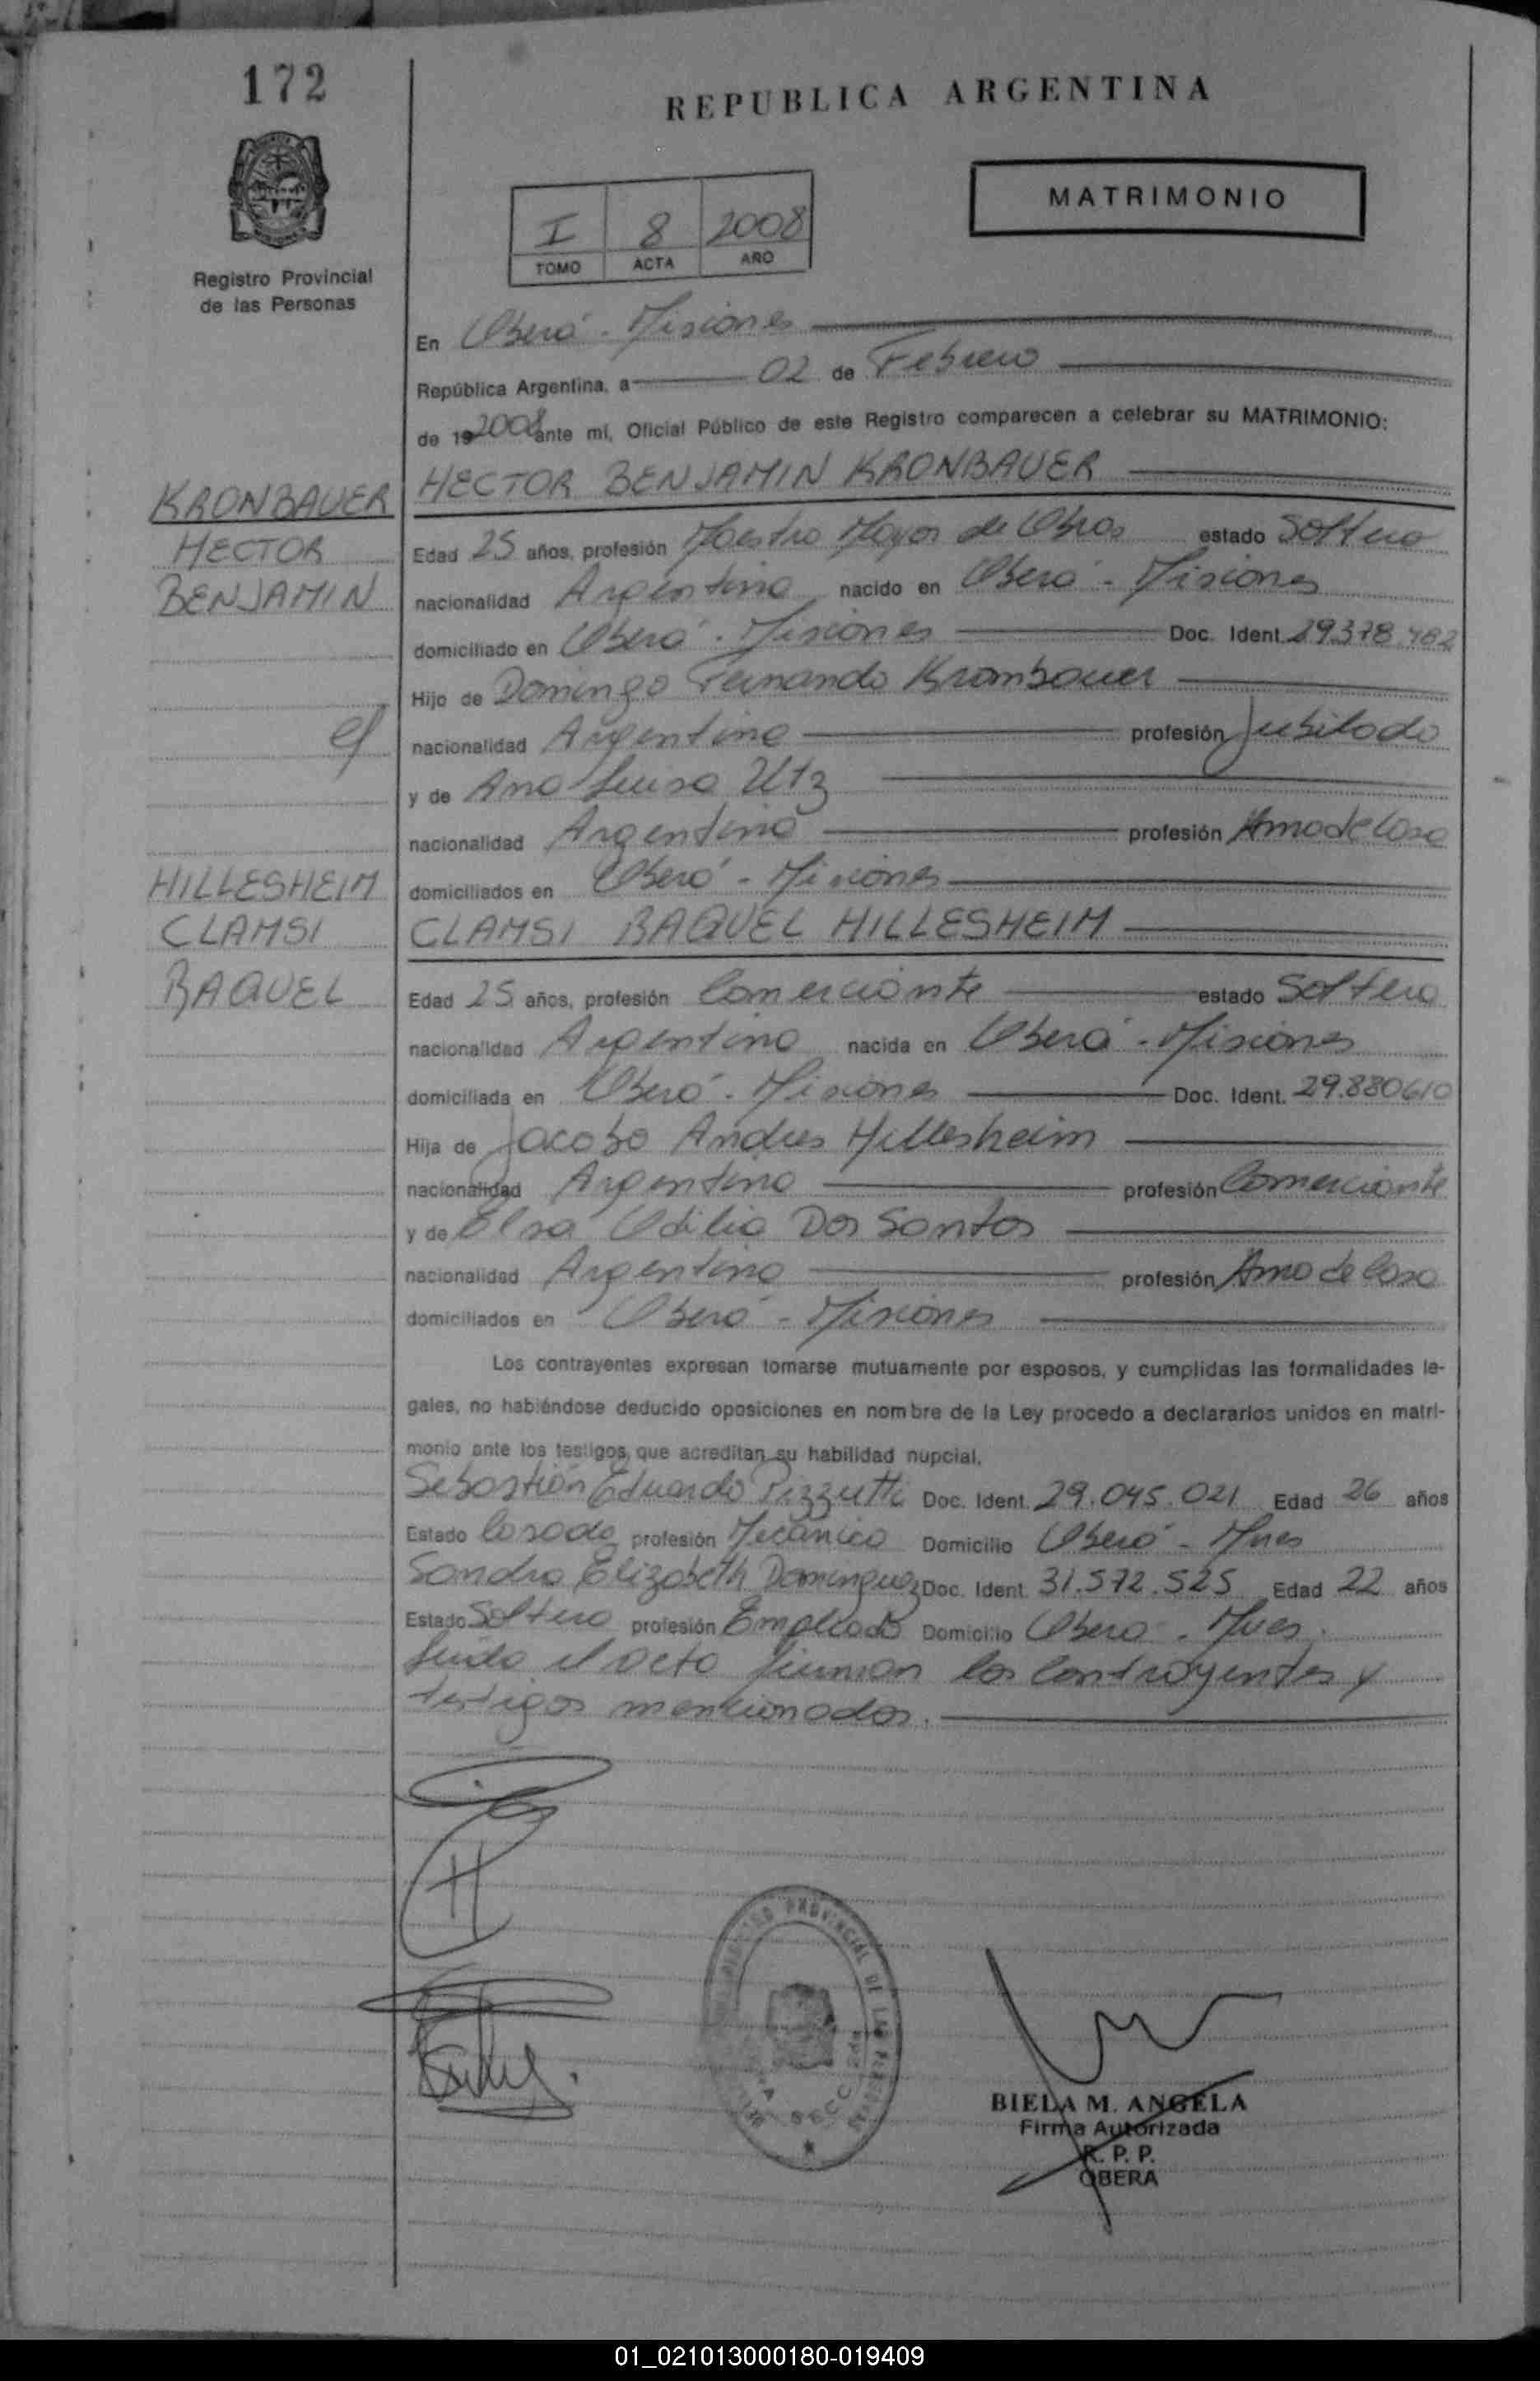 172
REPUBLICA ARGENTINA
MATRIMONIO
I 8 2008
TOMO ACTA AÑO
Registro Provincial
de las Personas
En Oberá - Misiones
República Argentina, a 02 de Febrero
de 19 2008 ante mí, Oficial Público de este Registro comparecen a celebrar su MATRIMONIO:
KRONBAUER
HECTOR
BENJAMIN
HECTOR BENJAMIN KRONBAUER
Edad 25 años, profesión Maestro Mayor de Obras estado Soltero
nacionalidad Argentina nacido en Oberá - Misiones
domiciliado en Oberá - Misiones Doc. Ident. 29.378.482
Hijo de Domingo Fernando Krombauer
nacionalidad Argentina profesión Jubilado
y de Ana Luisa Utz
nacionalidad Argentina profesión Ama de Casa
domiciliados en Oberá - Misiones
HILLESHEIM
CLAMSI
RAQUEL
CLAMSI RAQUEL HILLESHEIM
Edad 25 años, profesión Comerciante estado Soltera
nacionalidad Argentina nacida en Oberá - Misiones
domiciliada en Oberá - Misiones Doc. Ident. 29.880610
Hija de Jacobo Andres Hillesheim
nacionalidad Argentina profesión Comerciante
y de Elsa Odilia Dos Santos
nacionalidad Argentina profesión Ama de Casa
domiciliados en Oberá - Misiones
Los contrayentes expresan tomarse mutuamente por esposos, y cumplidas las formalidades le-
gales, no habiéndose deducido oposiciones en nombre de la Ley procedo a declararlos unidos en matri-
monio ante los testigos, que acreditan su habilidad nupcial,
Sebastián Eduardo Pizzutti Doc. Ident. 29.045.021 Edad 26 años
Estado Casado profesión Mecánico Domicilio Oberá - Mnes
Sandra Elizabeth Dominguez Doc. Ident. 31.572.525 Edad 22 años
Estado Soltera profesión Empleada Domicilio Oberá - Mnes.
Leída el acta firman los contrayentes y
testigos mencionados.
REGISTRO PROVINCIAL DE LAS PERSONAS
BIELA M. ANGELA
Firma Autorizada
R. P. P.
OBERA
01_021013000180-019409